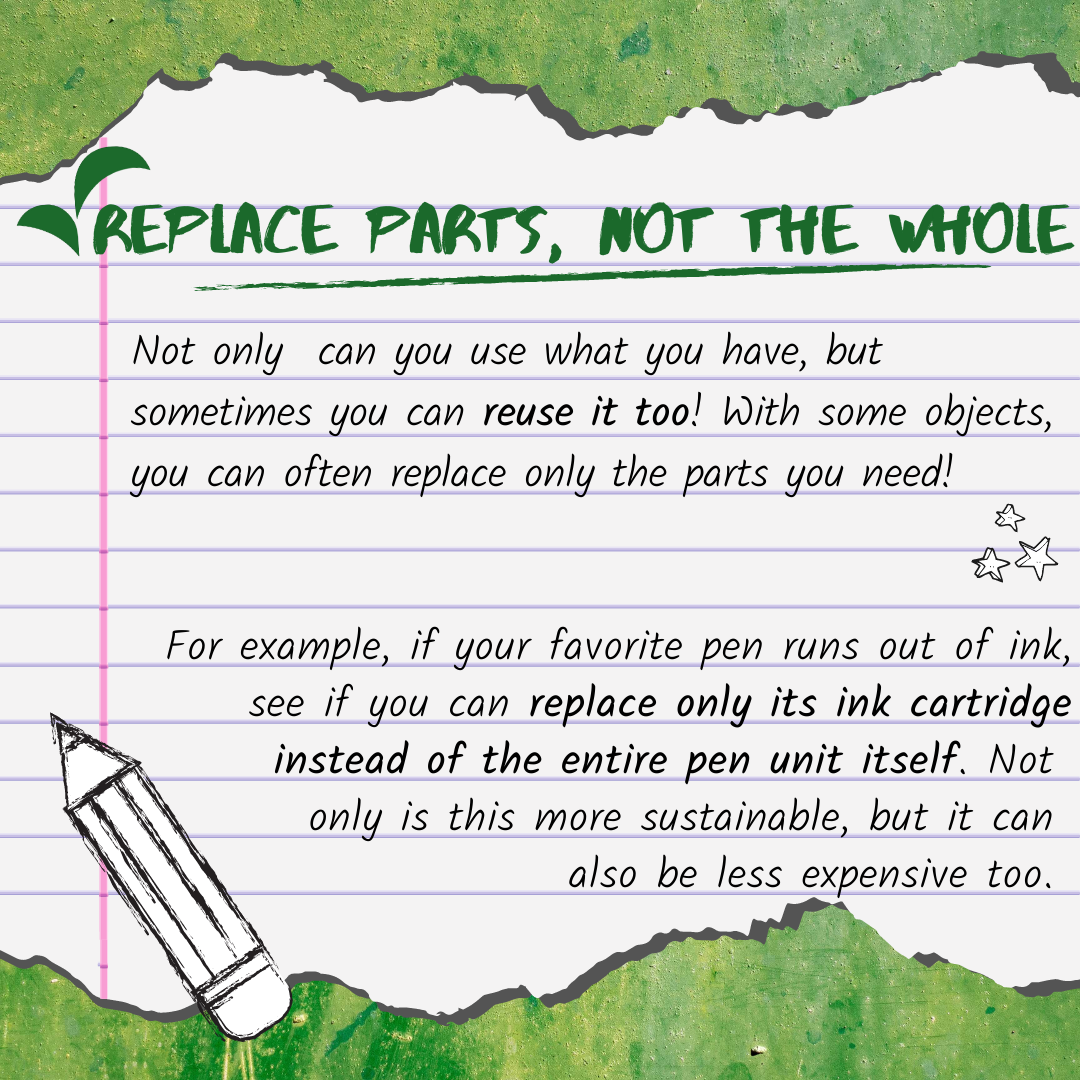 REPLACE PARTS, NOT THE WHOLE
Not only can you use what you have, but
sometimes you can reuse it too! With some objects,
you can often replace only the parts you need!
For example, if your favorite pen runs out of ink,
see if you can replace only its ink cartridge
instead of the entire pen unit itself. Not
only is this more sustainable, but it can
also be less expensive too.